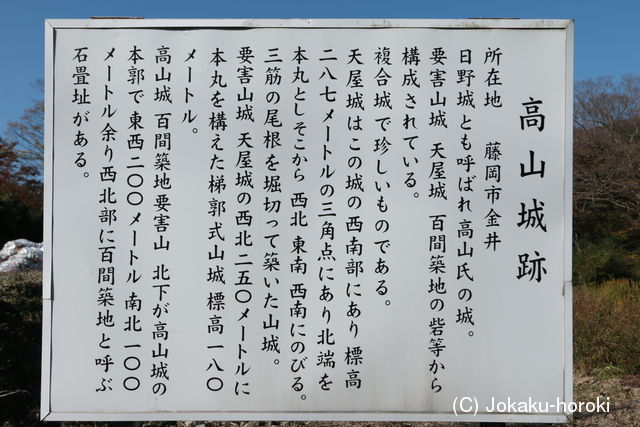 高山城跡
所在地　藤岡市金井
日野城とも呼ばれ高山氏の城。
要害山城 天屋城 百間築地の砦等から
構成されている。
複合城で珍しいものである。
天屋城はこの城の西南部にあり 標高
二八七メートルの三角点にあり北端を
本丸としそこから 西北 東南 西南にのびる。
三筋の尾根を堀切って築いた山城。
要害山城 天屋城の西北 二五〇メートルに
本丸を構えた梯郭式山城 標高一八〇
メートル。
高山城 百間築地要害山 北下が高山城の
本郭で 東西二〇〇メートル 南北一〇〇
メートル余り西北部に百間築地と呼ぶ
石畳址がある。
(C) Jokaku-horoki